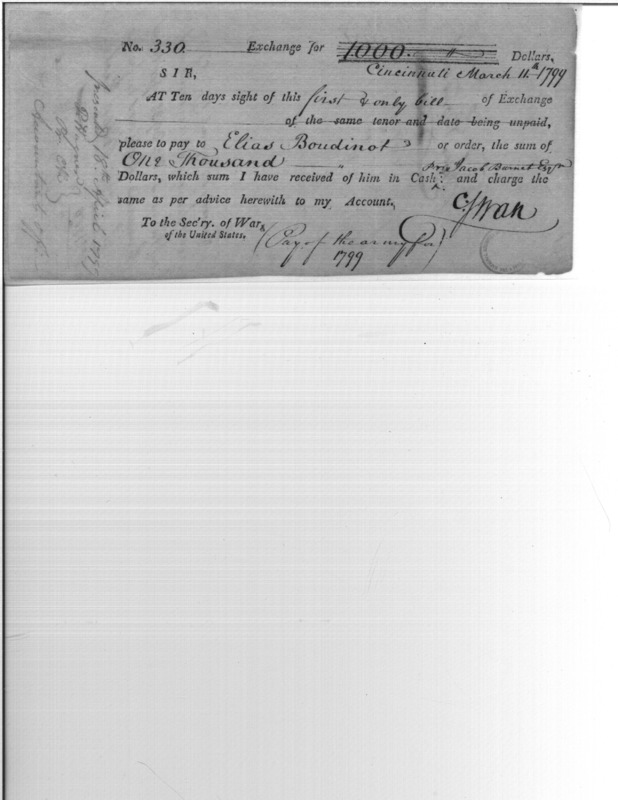 No. 330. Exchange for 1000. " Dollars,
Cincinnati March 11th 1799
SIR,
AT Ten days sight of this first & only bill of Exchange
of the same tenor and date being unpaid,
please to pay to Elias Boudinot or order, the sum of
One Thousand " Jacob Burnet Esqr
Dollars, which sum I have received of him in Cash and charge the
same as per advice herewith to my Account,
C Swan
To the Sec'ry. of War,
of the United States.
(Pay of the army for)
1799
18th April 1799